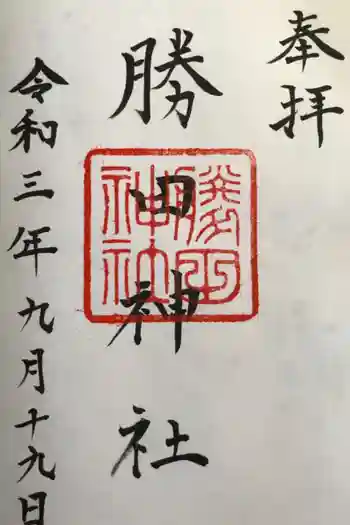 奉拝
勝田神社
勝田神社
令和三年九月十九日